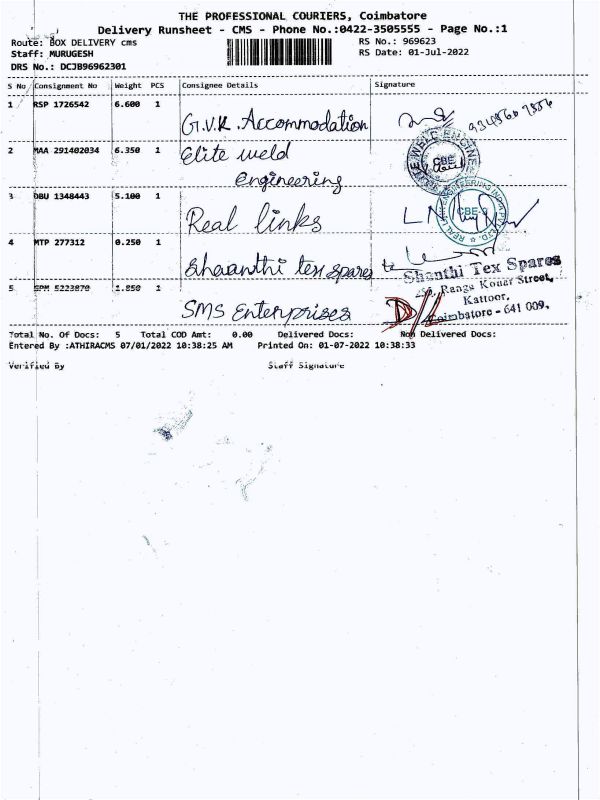 THE PROFESSIONAL COURIERS, Coimbatore
Delivery Runsheet - CMS - Phone No.:0422-3505555 - Page No.:1
Route: BOX DELIVERY cms
RS No.: 969623
Staff: MURUGESH
RS Date: 01-Jul-2022
DRS No.: DCJB96962301
S No Consignment No Weight PCS Consignee Details Signature
1 RSP 1726542 6.600 1 G.V.K. Accommodation
2 MAA 291402034 6.350 1 Elite weld
engineering
CBE
3 OBU 1348443 5.100 1 Real links
CBE-9
4 MTP 277312 0.250 1 Shaanthi tex spares
Shanthi Tex Spares
Ranga Konar Street,
Kattoor,
Coimbatore - 641 009.
5 GPM 5223870 1.850 1 SMS Enterprises D/L
Total No. Of Docs: 5 Total COD Amt: 0.00 Delivered Docs: Non Delivered Docs:
Entered By :ATHIRACMS 07/01/2022 10:38:25 AM Printed On: 01-07-2022 10:38:33
Verified By Staff Signature